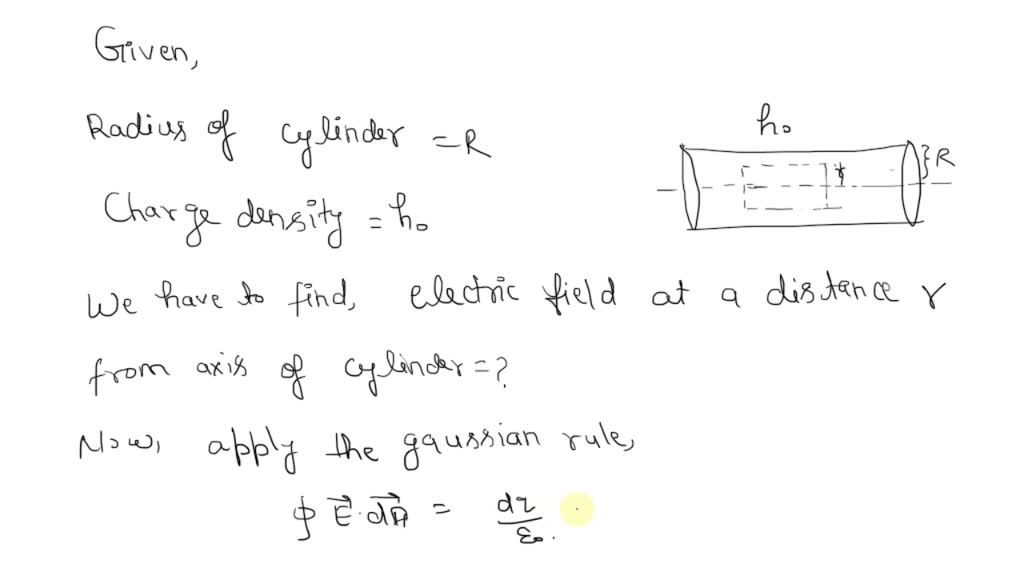 Given,
Radius of cylinder = R
h₀
} R
r
Charge density = h₀
We have to find, electric field at a distance r
from axis of cylinder = ?
Now, apply the gaussian rule,
∮ E⃗ · dA⃗ = dq/ε₀.